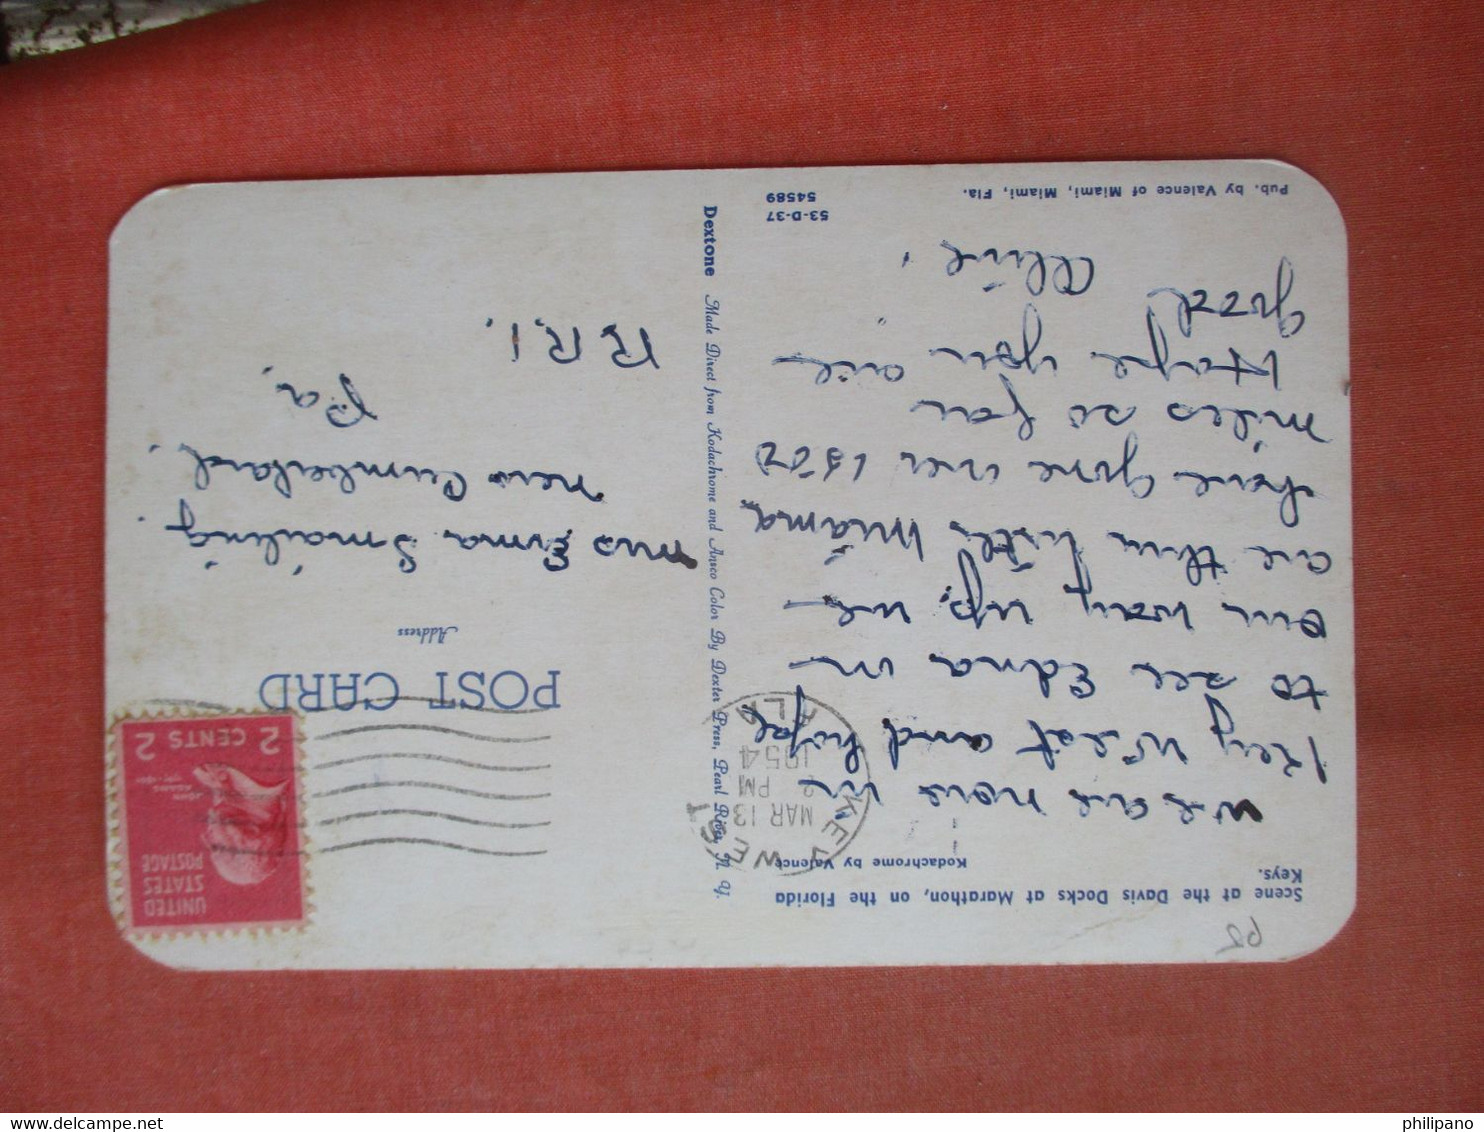 Scene at the Davis Docks at Marathon, on the Florida
Keys.
Kodachrome by Valence
We are now in
Key West and hope
to see Edna on
our way up. we
are thru little Miama
have gone over 1500
miles so far
Hope you are
good
Pub. by Valence of Miami, Miami, Fla.
53-D-37
54589
Dextone Made Direct from Kodachrome and Ansco Color By Dexter Press, Pearl River, N. Y.
KEY WEST
MAR 13
2 PM
1954
FLA
POST CARD
Address
Mrs Erma Smailing.
New Cumberland.
Pa.
R.R.1
UNITED
STATES
POSTAGE
JOHN
ADAMS
2 CENTS 2
philipano